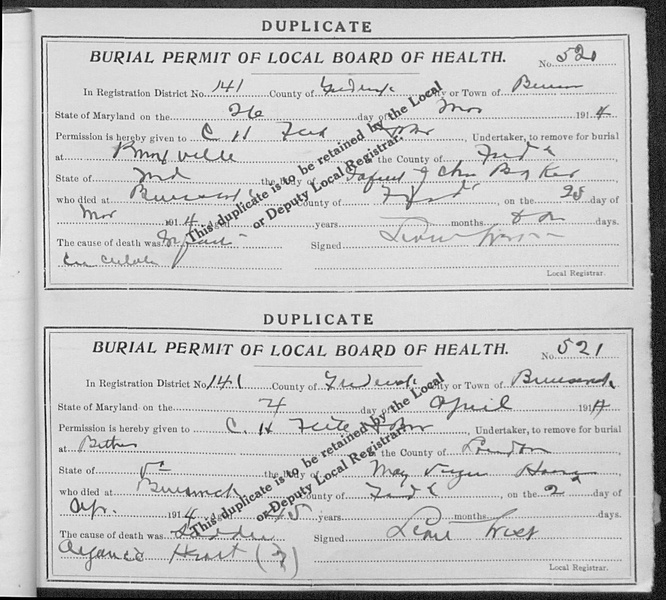 DUPLICATE
BURIAL PERMIT OF LOCAL BOARD OF HEALTH.
No. 520
In Registration District No. 141 County of Frederick City or Town of
State of Maryland on the 26 day of Mar 1914
Permission is hereby given to C. H. Feete & Son, Undertaker, to remove for burial
at the County of Fredk
State of Md the body of Infant of Chas Baker
who died at Brunswick County of Fredk, on the 25 day of
Mar 1914 years months days.
The cause of death was Infant Signed
Local Registrar.
This duplicate is to be retained by the Local
or Deputy Local Registrar.
DUPLICATE
BURIAL PERMIT OF LOCAL BOARD OF HEALTH.
No. 521
In Registration District No. 141 County of Frederick City or Town of Brunswick
State of Maryland on the 4 day of April 1914
Permission is hereby given to C. H. Feete & Son, Undertaker, to remove for burial
at the County of Loudon
State of Va the body of May
who died at Brunswick County of Fredk, on the 2 day of
Apr. 1914 45 years months days.
The cause of death was Sudden Signed West
Organic Heart (?)
Local Registrar.
This duplicate is to be retained by the Local
or Deputy Local Registrar.